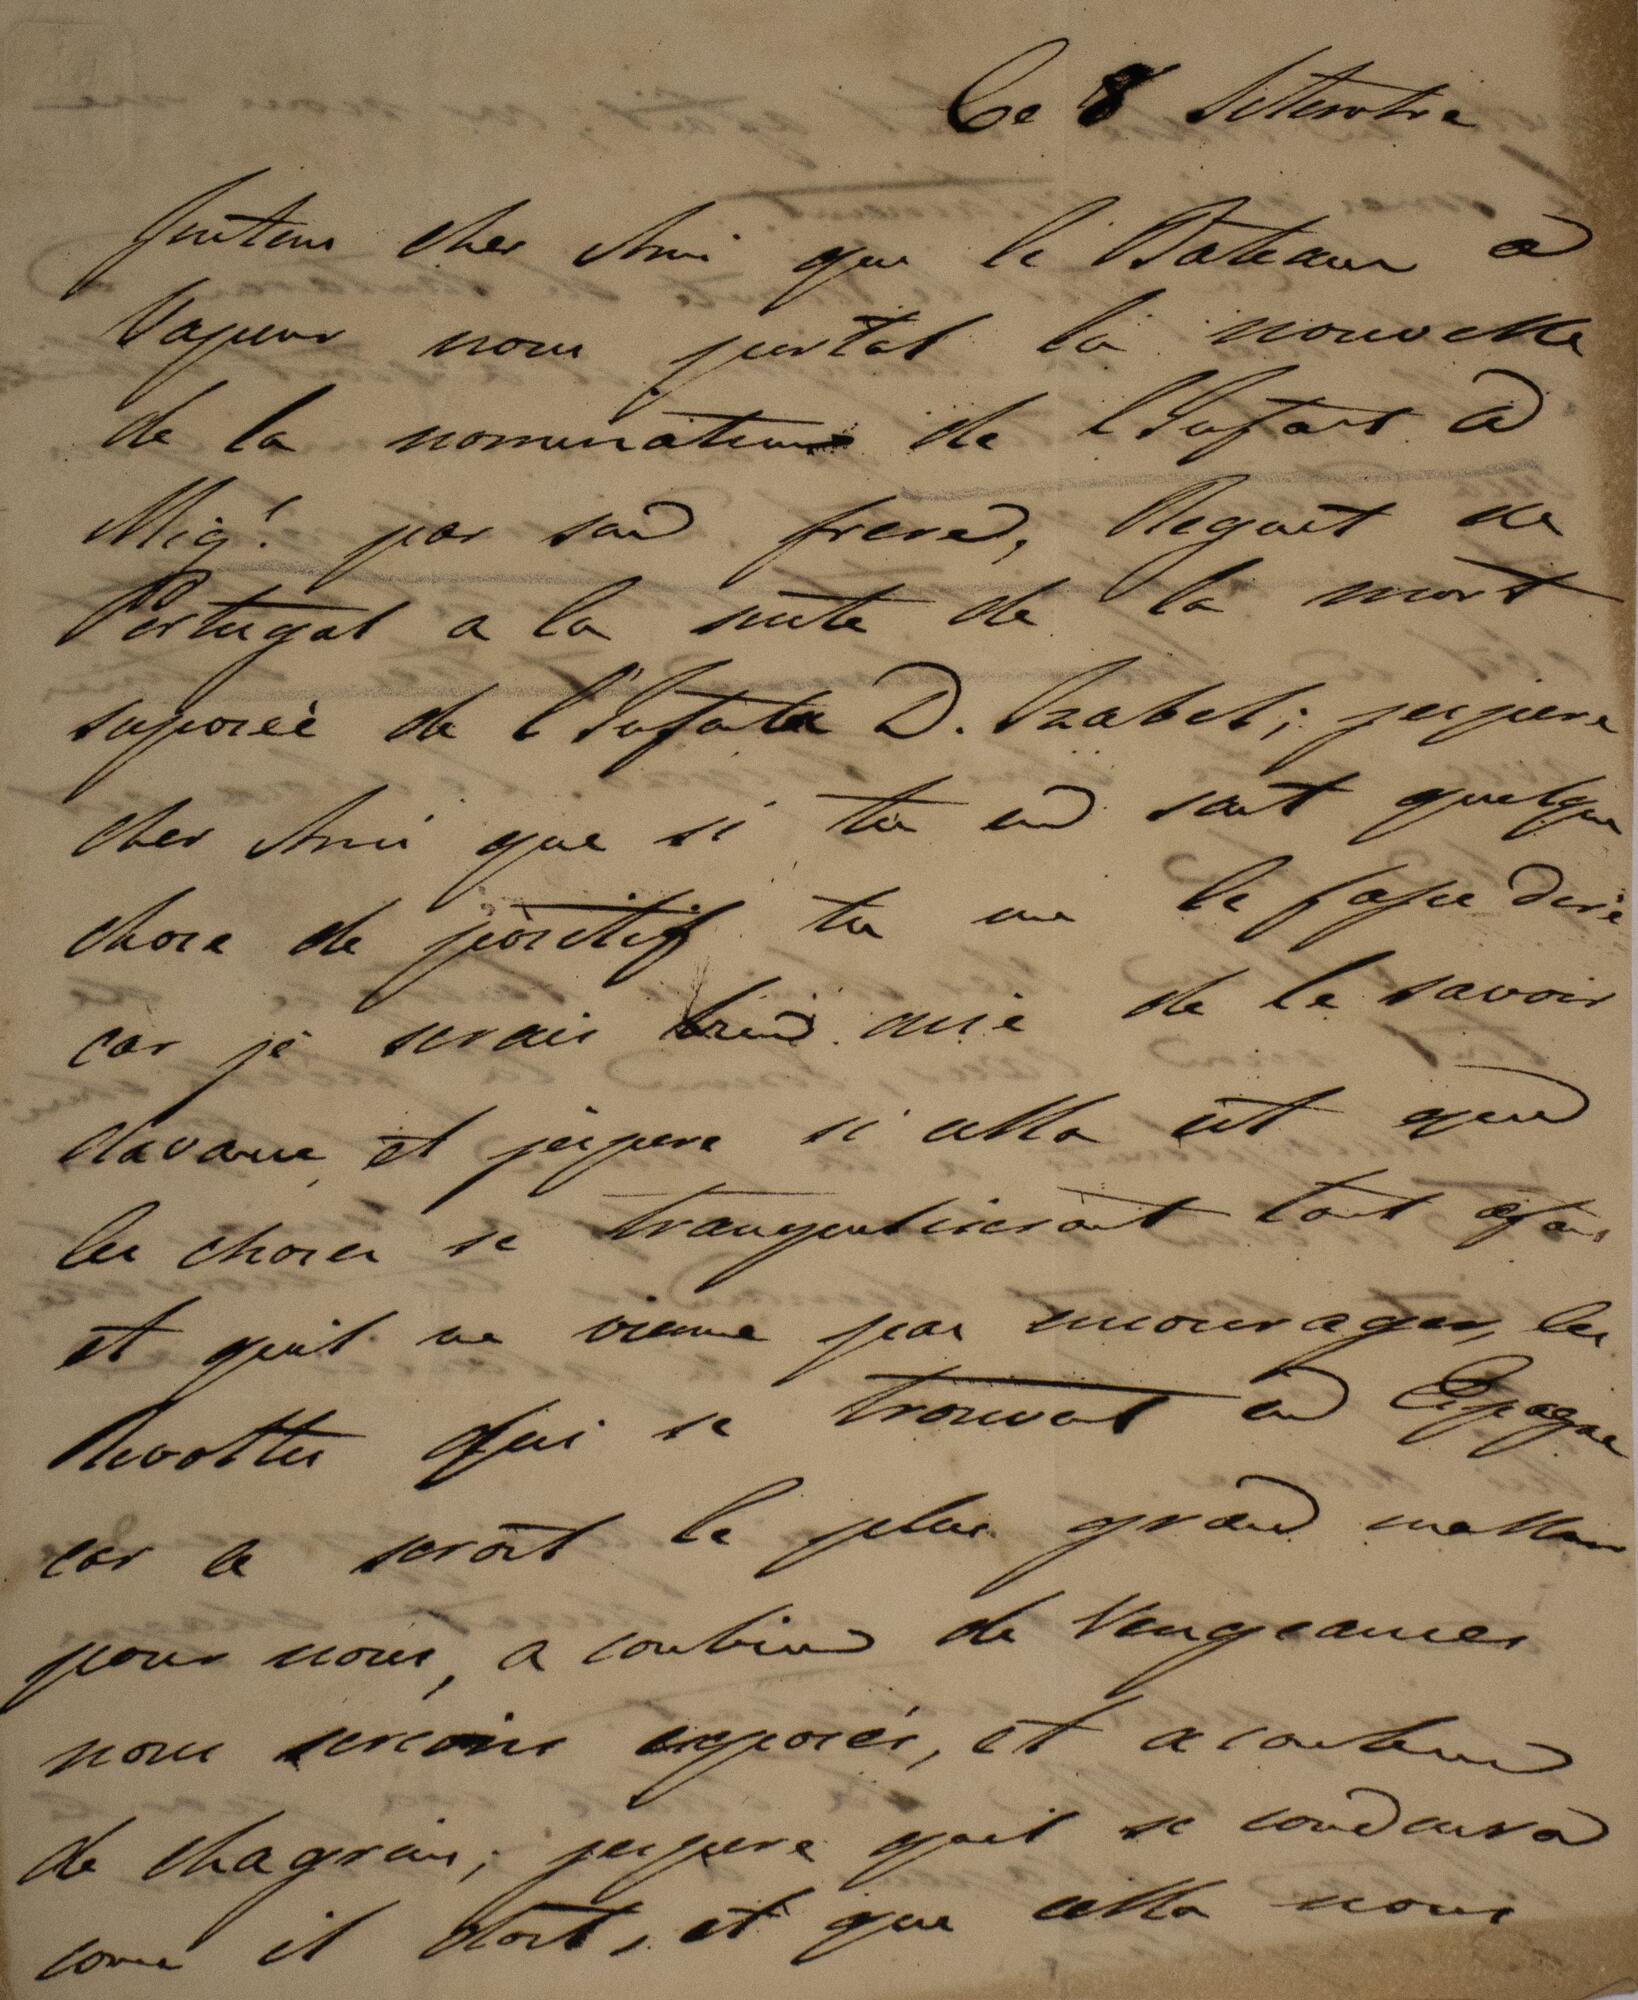 Ce 8 Setembre
J'entens cher Ami que le Bateau a
Vapeur nous portat la nouvelle
de la nomination de l'Infant D
Mig.l par son frere, Regent de
Portugal a la suite de la mort
suposeé de l'Infanta D. Izabel; jespere
cher Ami que si tu en sait quelque
chose de positif tu me le fasse dire
car je serais bien aise de le savoir
davance, et jespere si cella est que
les choses se tranquiliseront tout afait
et quil ne vienne pas encourager, les
Revoltés qui se trouvent en Espagne
car ce serait le plus grand malheur
pour nous, a combien de Vengeances
nous serions exposés, et a combien
de chagrins; jespere quil se conduira
come il doit, et que cella nous